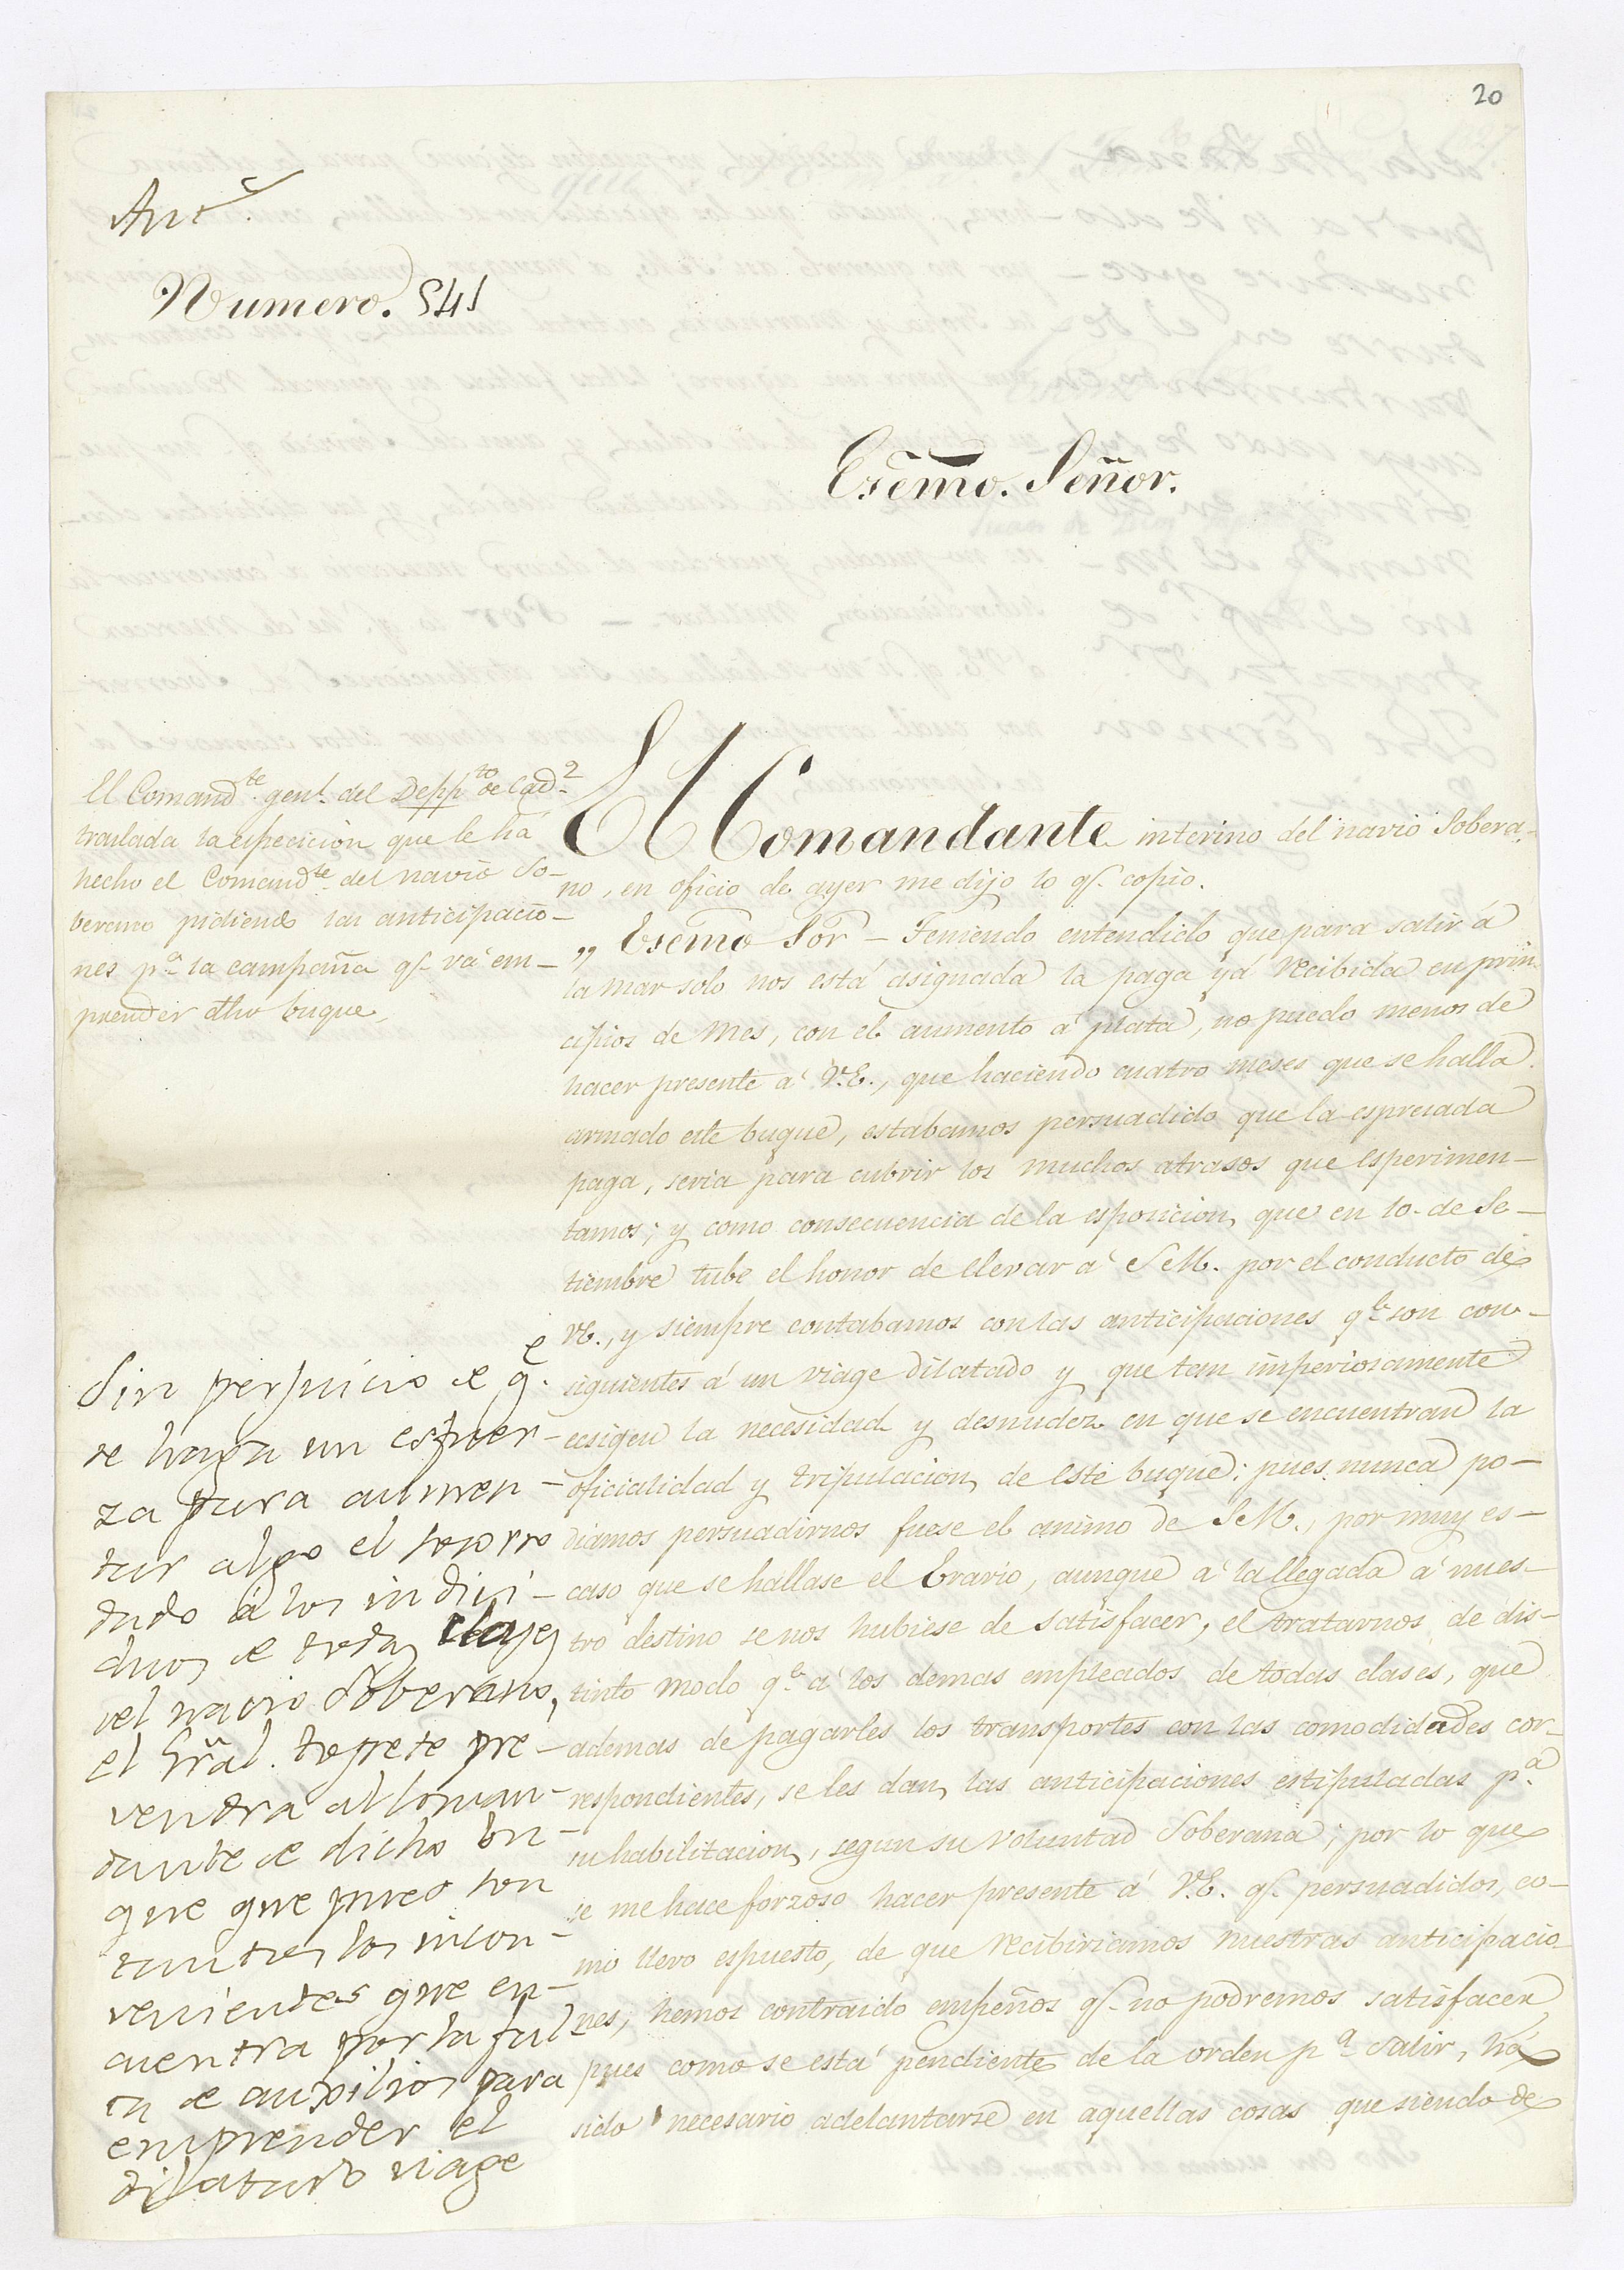 20
Ant.
Numero. 541
Esemo. Señor.
El Comandte. genl. del Deppto de Cadz.
traslada la esposicion que le há
hecho el Comandte. del navio So-
berano pidiendo las anticipacio-
nes pa. la campaña qe. vá em-
prender dho buque
El Comandante interino del navio Sobera-
no, en oficio de ayer me dijo lo qe. copio.
„ Esemo Sor - Teniendo entendido que para salir á
la mar solo nos está asignada la paga yá recibida en prin-
cipios de mes, con el aumento á plata, no puedo menos de
hacer presente á V.E., que haciendo cuatro meses que se halla
armado este buque, estabamos persuadido que la espresada
paga, seria para cubrir los muchos atrasos que esperimen-
tamos; y como consecuencia de la esposicion, que en 10 de Se-
tiembre tube el honor de elevar á S.M. por el conducto de
V.E., y siempre contabamos con las anticipaciones qe. son con-
siguientes á un viage dilatado y que tan imperiosamente
ecsigen la necesidad y desnudez en que se encuentran la
oficialidad y tripulacion, de este buque: pues nunca po-
diamos persuadirnos fuese el animo de S.M., por muy es-
caso que se hallase el Erario, aunque á la llegada á nues-
tro destino se nos hubiese de satisfacer, el tratarnos de dis-
tinto modo qe. á los demas empleados de todas clases, que
ademas de pagarles los transportes con las comodidades cor-
respondientes, se les dan, las anticipaciones estipuladas pa.
su habilitacion, segun su voluntad Soberana; por lo que
se me hace forzoso hacer presente á V.E. qe. persuadidos, co-
mo llevo espuesto, de que recibiriamos nuestras anticipacio-
nes, hemos contraido empeños qe. no podremos satisfacer
pues como se está pendiente de la orden pa. salir, há
sido necesario adelantarse en aquellas cosas que siendo de
Sin perjuicio de qe.
se haga un esfuer-
zo para aumen-
tar algo el socorro
dado á los indivi-
duos de todas clases
del navio Soberano,
el Gral. Topete pre-
vendrá al Coman-
dante de dicho bu-
que que pues son
tantos los incon-
venientes que en-
cuentra por la fal-
ta de auxilios para
emprender el
dilatado viage